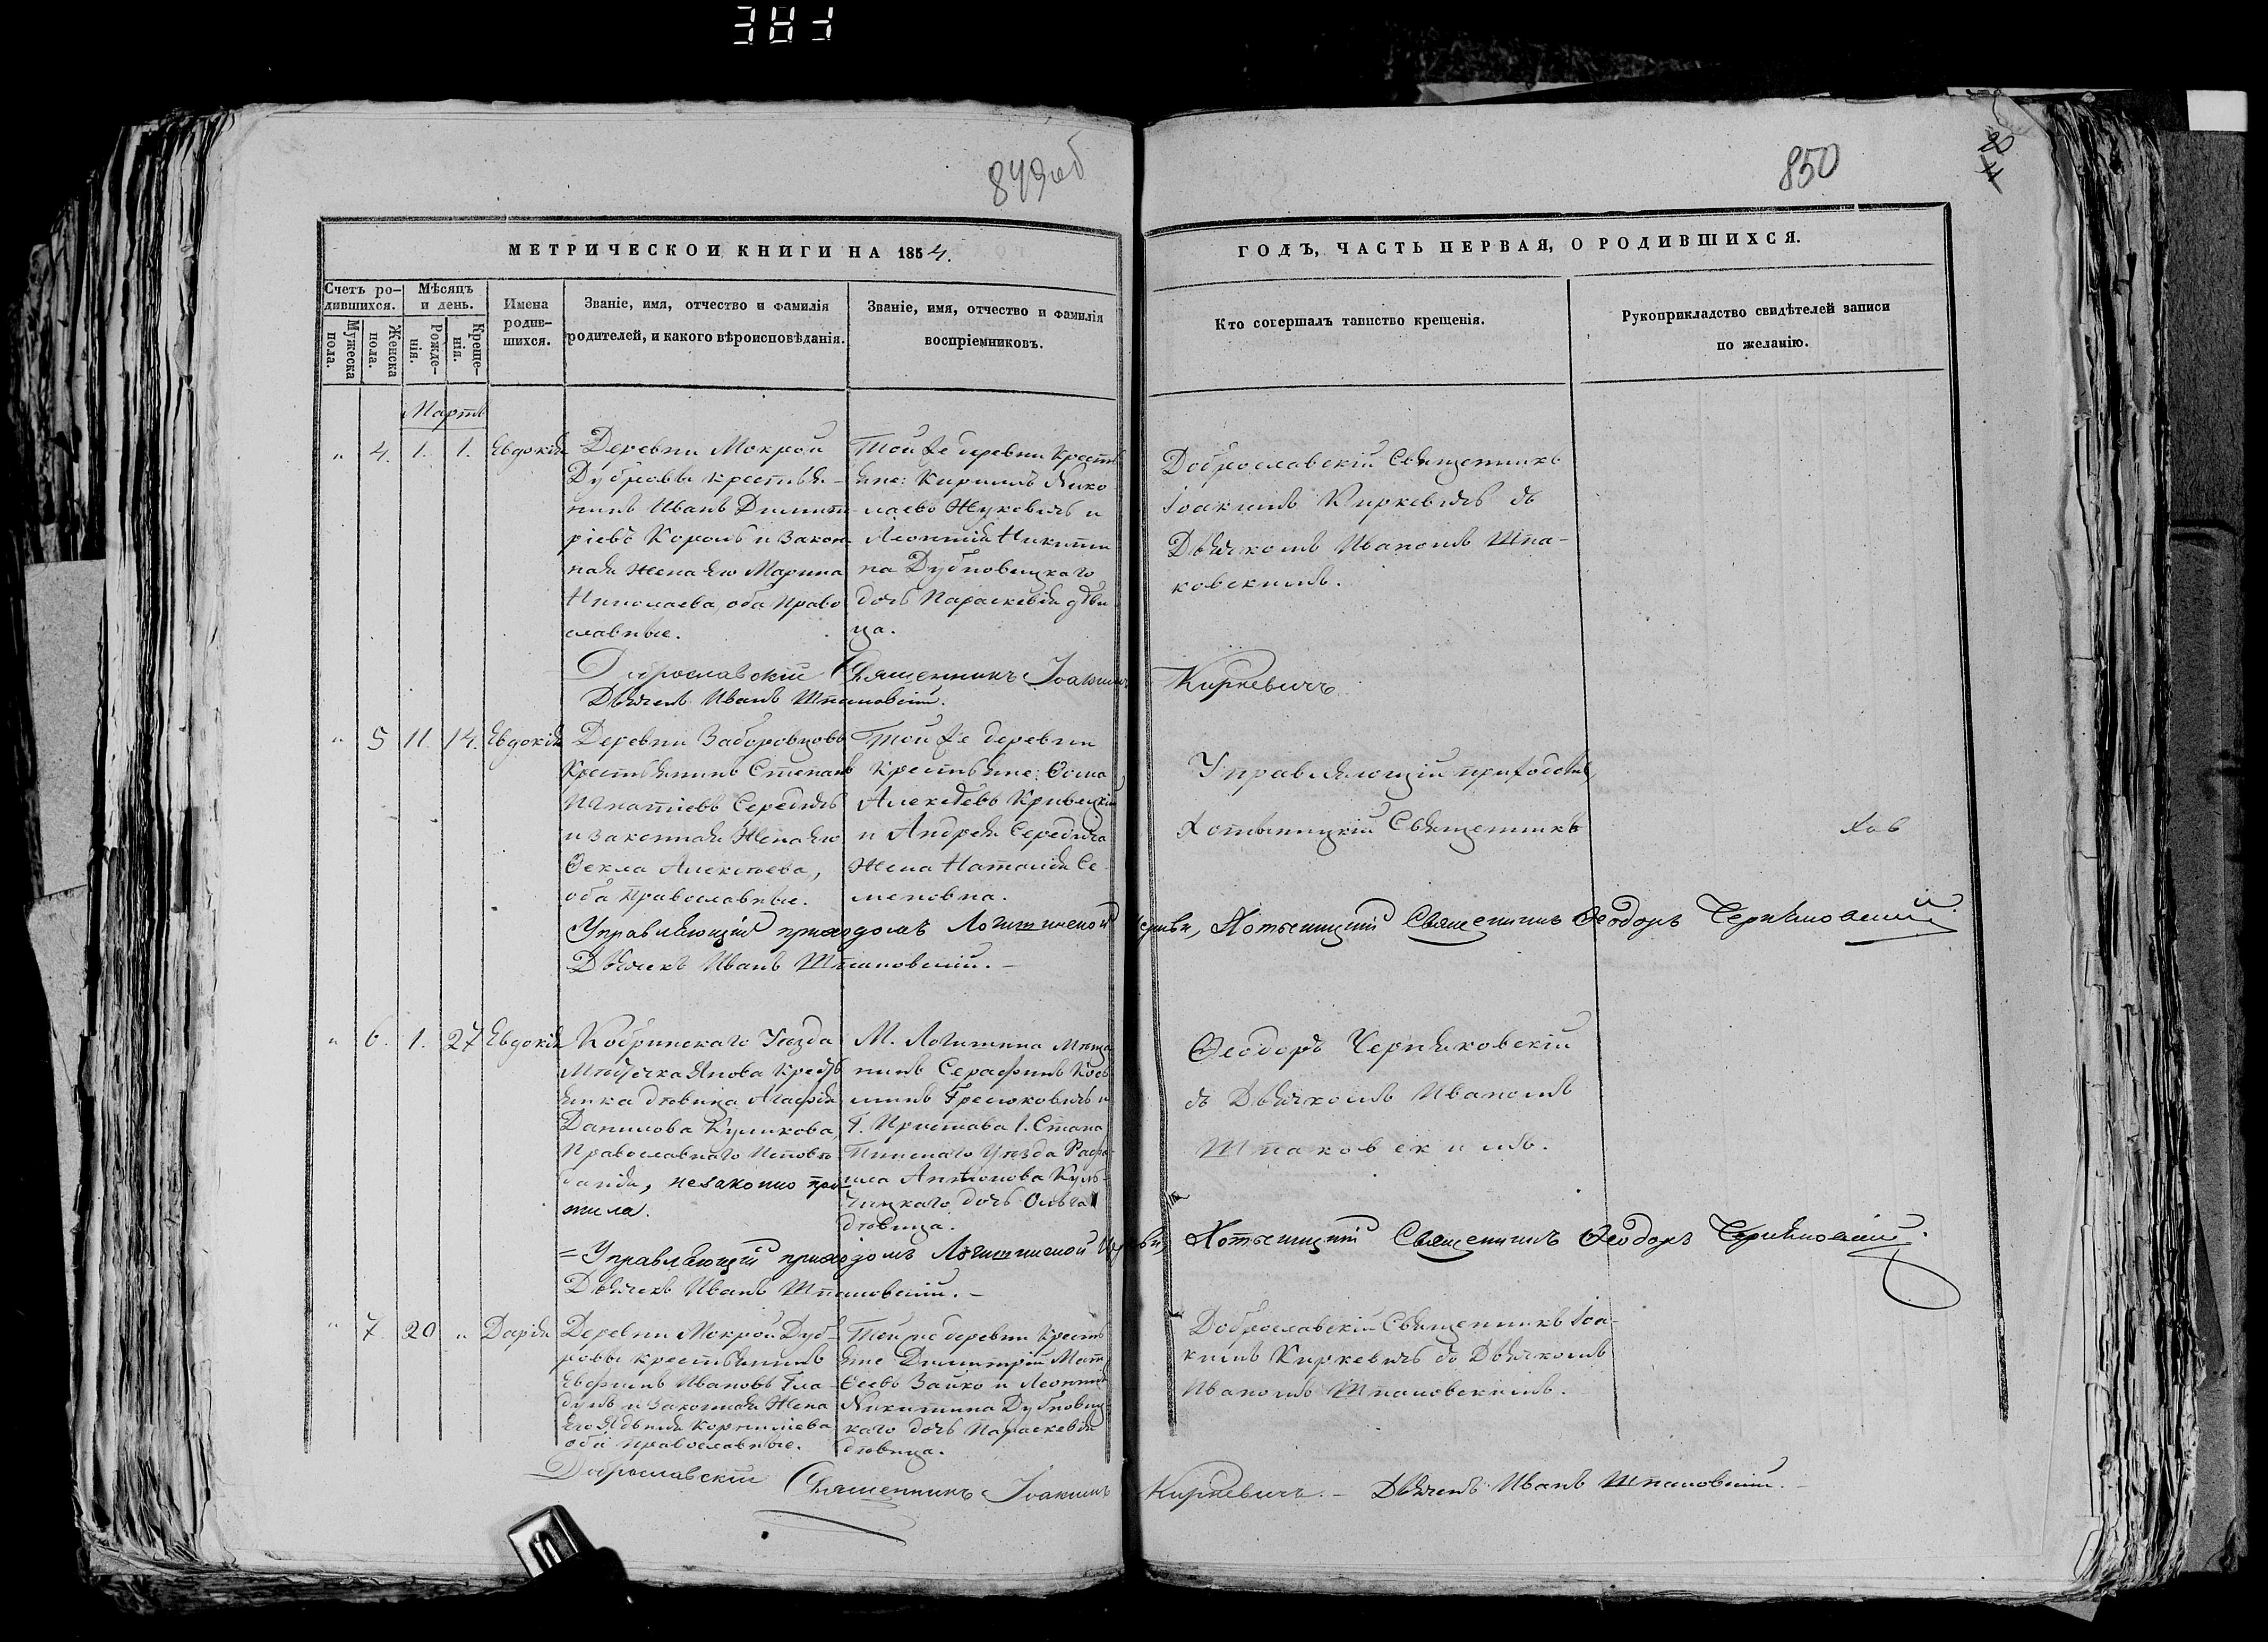 849 об
850
МЕТРИЧЕСКОЙ КНИГИ НА 1854.
ГОДЪ, ЧАСТЬ ПЕРВАЯ, О РОДИВШИХСЯ.
Счетъ ро-
дившихся.
Мужеска
пола.
Женска
пола.
Мѣсяцъ
и день.
Рожде-
нія.
Креще-
нія.
Имена
родив-
шихся.
Званіе, имя, отчество и фамилія
родителей, и какого вѣроисповѣданія.
Званіе, имя, отчество и фамилія
воспріемниковъ.
Кто совершалъ таинство крещенія.
Рукоприкладство свидѣтелей записи
по желанію.
Мартъ
" 4. 1. 1. Евдокія
Деревни Мокрой
Дубровы крестья-
нинъ Иванъ Димит
ріевъ Король и закон
ная жена его Марина
Николаева, оба право
славные.
Той же деревни крестья
не: Кириллъ Нико
лаевъ Жуковичъ и
Леонтія Никити
на Дубновицкаго
дочь Параскевія дѣви
ца.
Доброславскій Священникъ
Іоакимъ Киркевичъ съ
Дьячкомъ Иваномъ Шпа-
ковскимъ.
Доброславскій Священникъ Іоакимъ Киркевичъ
Дьячекъ Иванъ Шпаковскій.
" 5 11. 14. Евдокія
Деревни Заборовцовъ
Крестьянинъ Степанъ
Игнатіевъ Середичъ
и законная жена его
Ѳекла Алексѣева,
оба православные.
Той же деревни
крестьяне: Ѳома
Алексѣевъ Кривецкій
и Андрея Середича
жена Наталія Се
меновна.
Управляющій приходомъ,
Хотыницкій Священникъ
Управляющій приходомъ Логишинской церкви, Хотыницкій Священникъ Ѳеодоръ Черняковскій
Дьячекъ Иванъ Шпаковскій.-
" 6. 1. 27 Евдокія
Кобринскаго Уѣзда
Мѣстечка Янова крестья
янка дѣвица Агафія
Данилова Куликова,
Православнаго исповѣ
данія, незаконно при-
жила.
М. Логишина мѣща
нинъ Серафимъ
Г. Пристава 1. Стана
Пинскаго Уѣзда
Антонова Куль-
чицкаго дочь Ольга
дѣвица.
Ѳеодоръ Черняковскій
съ Дьячкомъ Иваномъ
Шпаковскимъ.
= Управляющій приходомъ Логишинской Церкви, Хотыницкій Священникъ Ѳеодоръ Черняковскій.
Дьячекъ Иванъ Шпаковскій.-
" 7. 20 " Дарія
Деревни Мокрой Дуб-
ровы крестьянинъ
Евфимъ Ивановъ Гла-
дунъ и законная жена
его Корнилієва
оба православные.
Той же деревни кресть
яне Димитрій Мат
ѳеевъ Зайко и Леонтія
Никитина Дубновиц
каго дочь Параскевія
дѣвица.
Доброславскій Священникъ Іоа-
кимъ Киркевичъ съ Дьячкомъ
Иваномъ Шпаковскимъ.
Доброславскій Священникъ Іоакимъ Киркевичъ.- Дьячекъ Иванъ Шпаковскій.-